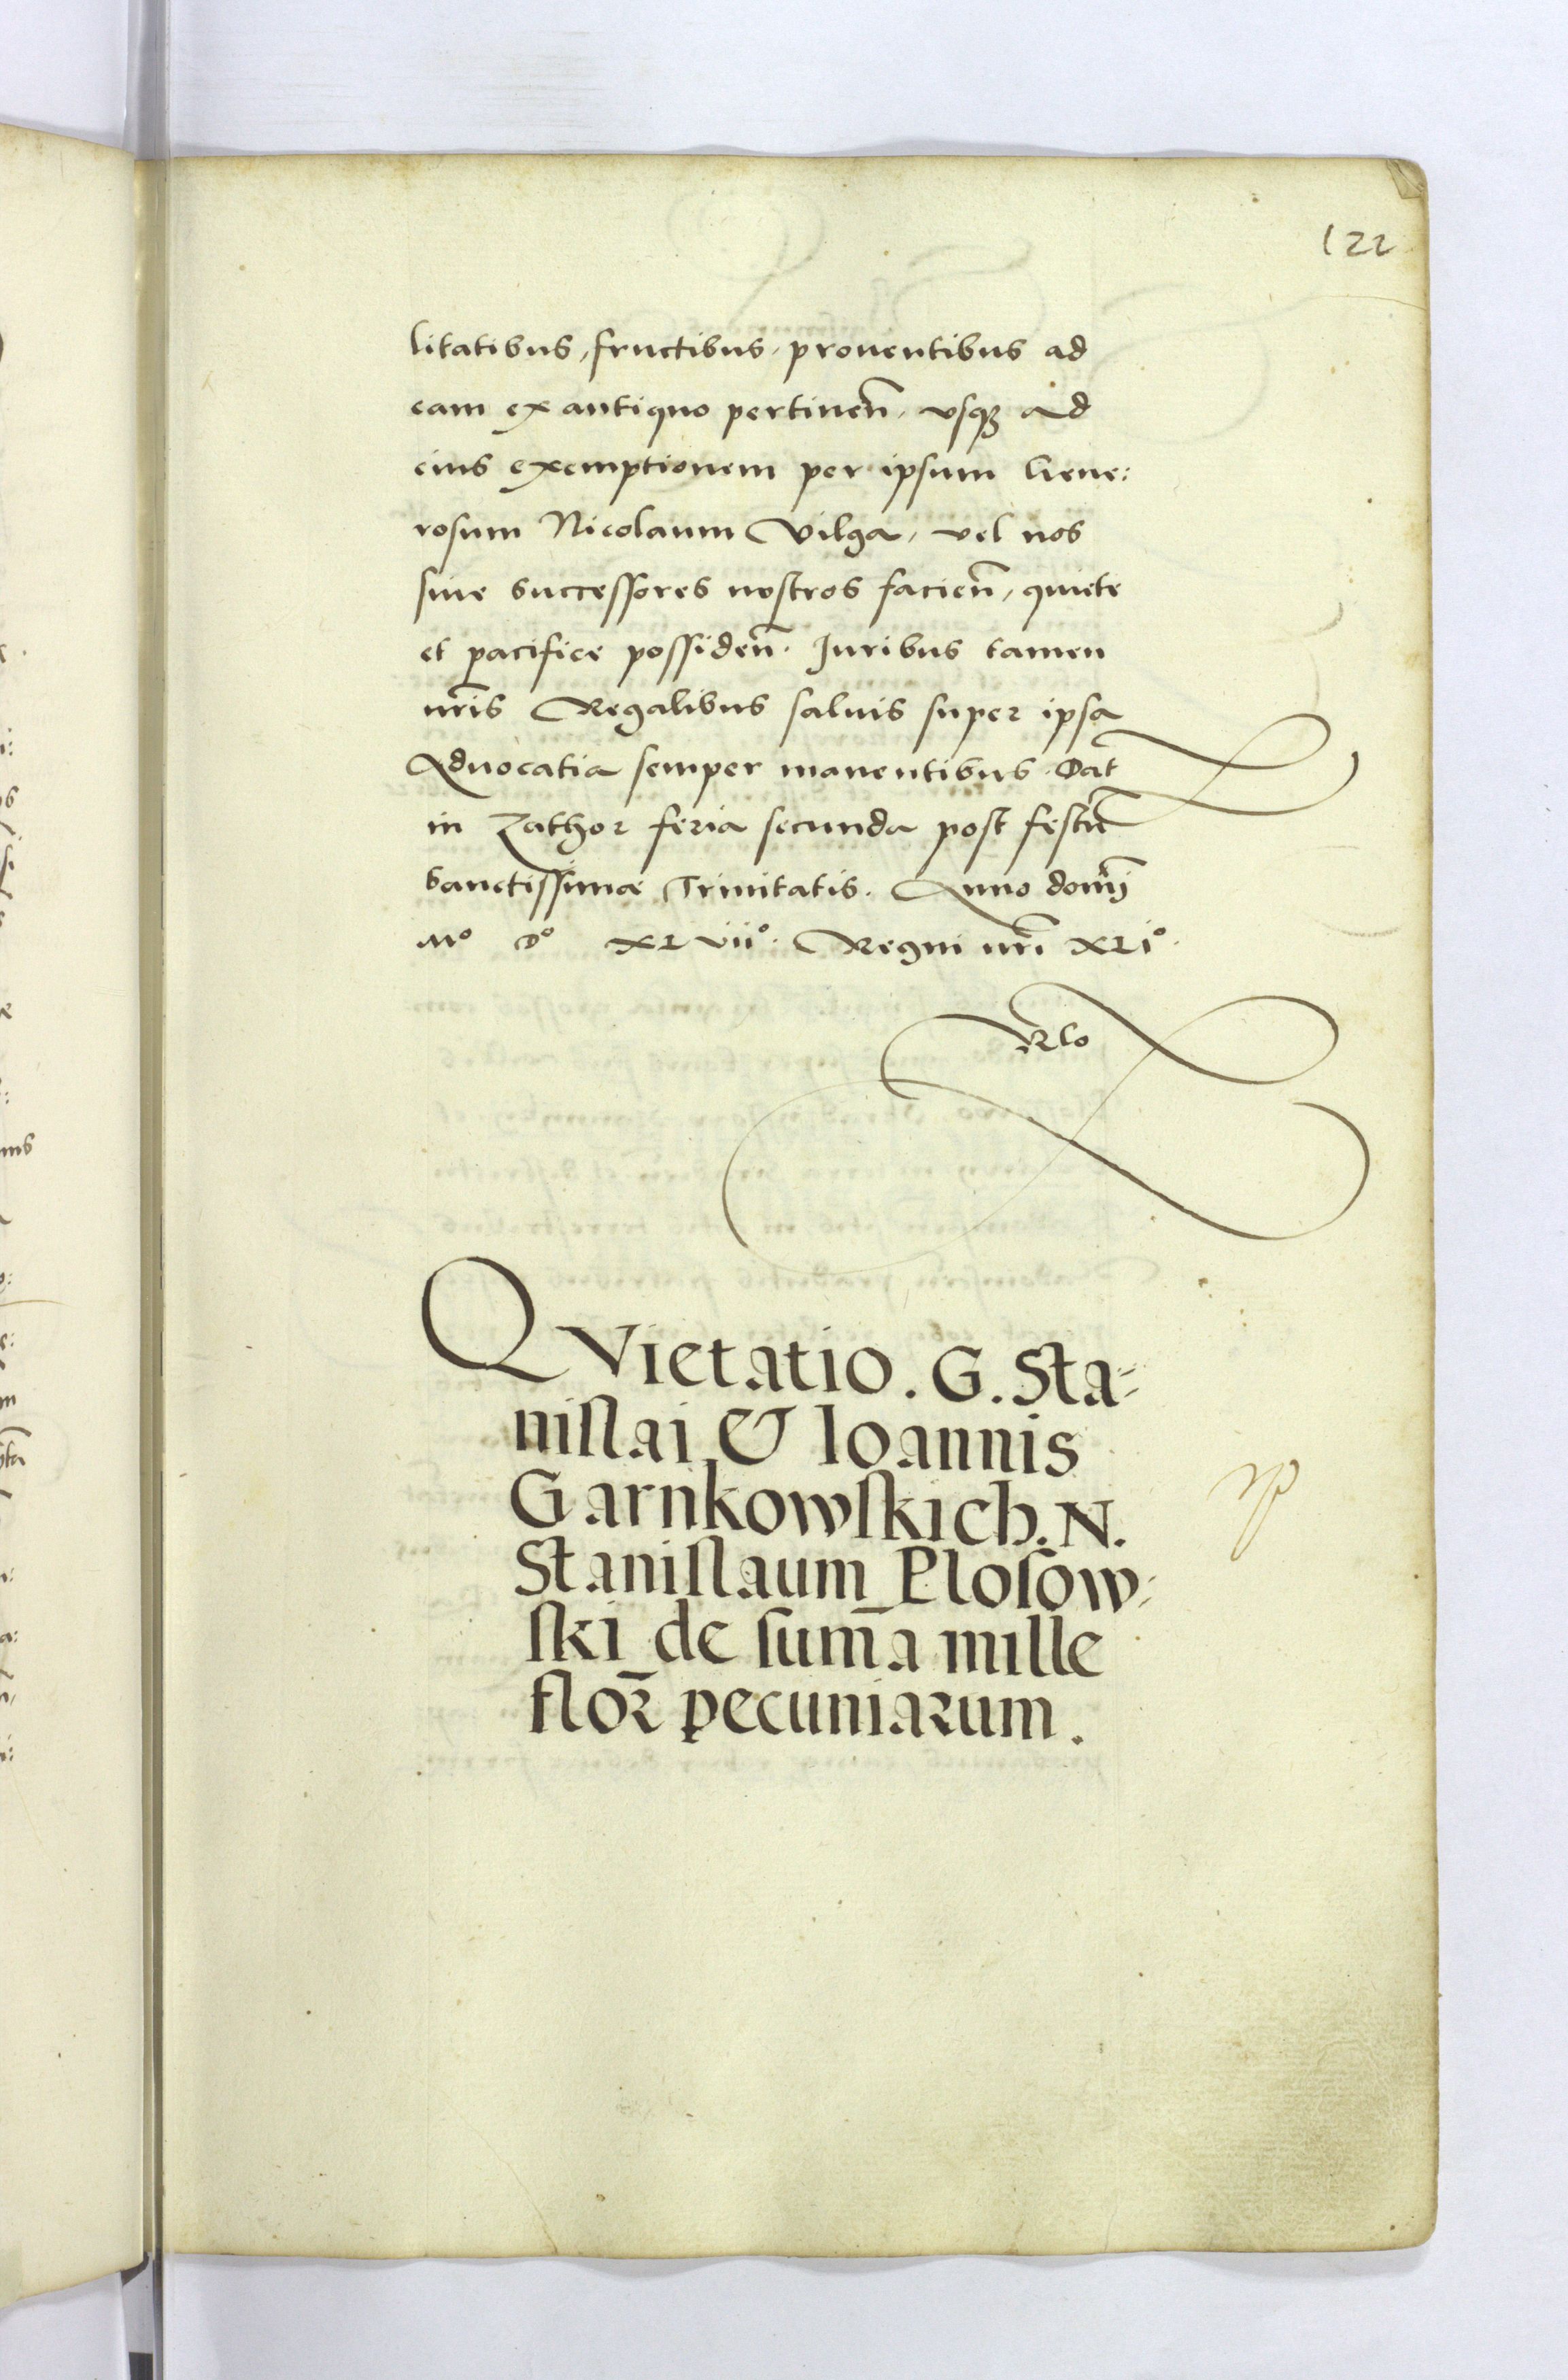 122
litatibus, fructibus, prouentibus ad
eam ex antiquo pertinen̄, vsqꝫ ad
eius exemptionem per ipsum Gene:
rosum Nicolaum Vilga, vel nos
siue successores nostros facien̄, quiete
et pacifice possiden̄. Iuribus tamen
nr̄is Regalibus saluis super ipsa
Aduocatia semper manentibus. Dat̄
in Zathor feria secunda post festū
sanctissimæ Trinitatis. Anno domī
Mº Dº XLviiº. Regni nr̄i XLiº.
QVietatio. G. Sta=
nislai & Ioannis
Garnkowskich. N.
Stanislaum Plosow=
ski de sum̄a mille
flor̄ pecuniarum.